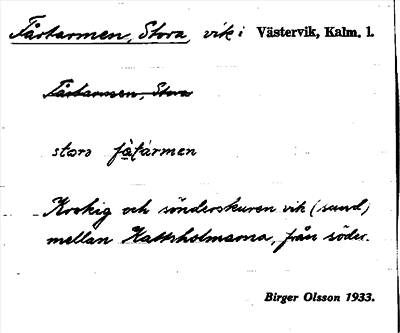 Fårtarmen, Stora, vik i Västervik, Kalm. l.
Fårtarmen, Stora
stora
Krokig och sönderskuren vik (sund)
mellan Hattholmarna, från söder.
Birger Olsson 1933.